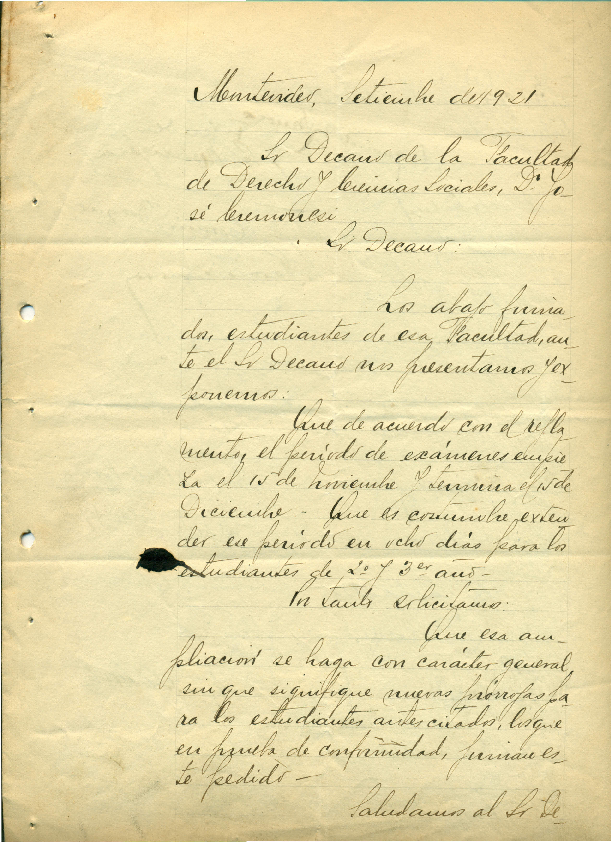 Montevideo, Setiembre de 1921.
Sr Decano de la Facultad
de Derecho y Ciencias Sociales, Dr. Jo-
sé Cremonesi
Sr. Decano:
Los abajo firma-
dos, estudiantes de esa Facultad, an-
te el Sr Decano nos presentamos y ex-
ponemos:
Que de acuerdo con el regla-
mento, el período de exámenes empie
za el 15 de Noviembre y termina el 15 de
Diciembre - Que es costumbre exten-
der ese período en ocho días para los
estudiantes de 2º y 3er año -
Por tanto solicitamos:
Que esa am-
pliación se haga con carácter general,
sin que signifique nuevas prórrogas pa-
ra los estudiantes antes citados, los que
en prueba de conformidad, firman es-
te pedido -
Saludamos al Sr De-